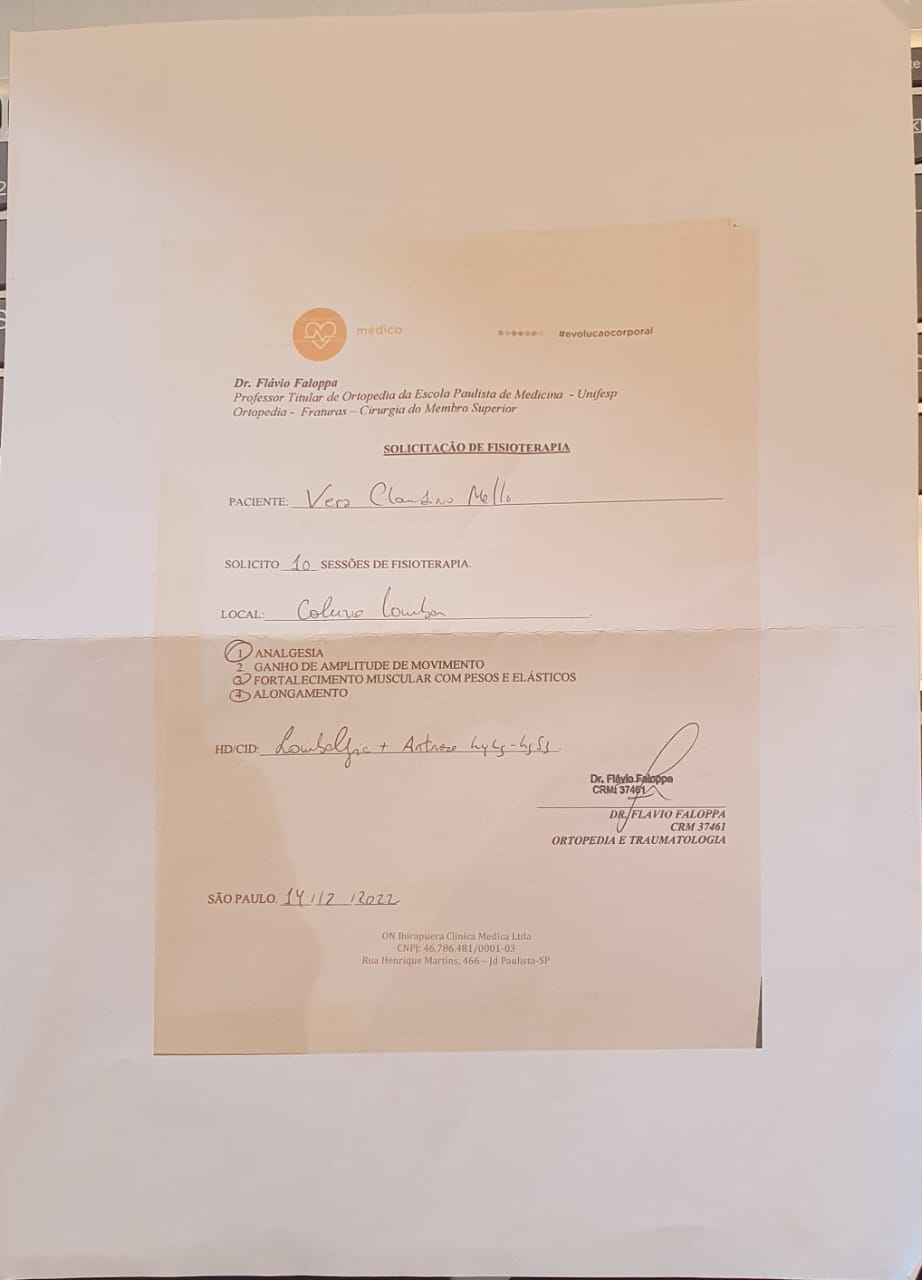 médico
#evolucaocorporal
Dr. Flávio Faloppa
Professor Titular de Ortopedia da Escola Paulista de Medicina - Unifesp
Ortopedia - Fraturas – Cirurgia do Membro Superior
SOLICITAÇÃO DE FISIOTERAPIA
PACIENTE: Vera Claudino Mello
SOLICITO 10 SESSÕES DE FISIOTERAPIA.
LOCAL: Coluna Lombar
1. ANALGESIA
2. GANHO DE AMPLITUDE DE MOVIMENTO
3. FORTALECIMENTO MUSCULAR COM PESOS E ELÁSTICOS
4. ALONGAMENTO
HD/CID: Lombalgia + Artrose L4L5-L5S1.
Dr. Flávio Faloppa
CRM: 37461
DR. FLAVIO FALOPPA
CRM 37461
ORTOPEDIA E TRAUMATOLOGIA
SÃO PAULO, 14/12/2022
ON Ibirapuera Clinica Medica Ltda
CNPJ: 46.786.481/0001-03
Rua Henrique Martins, 466 – Jd Paulista-SP